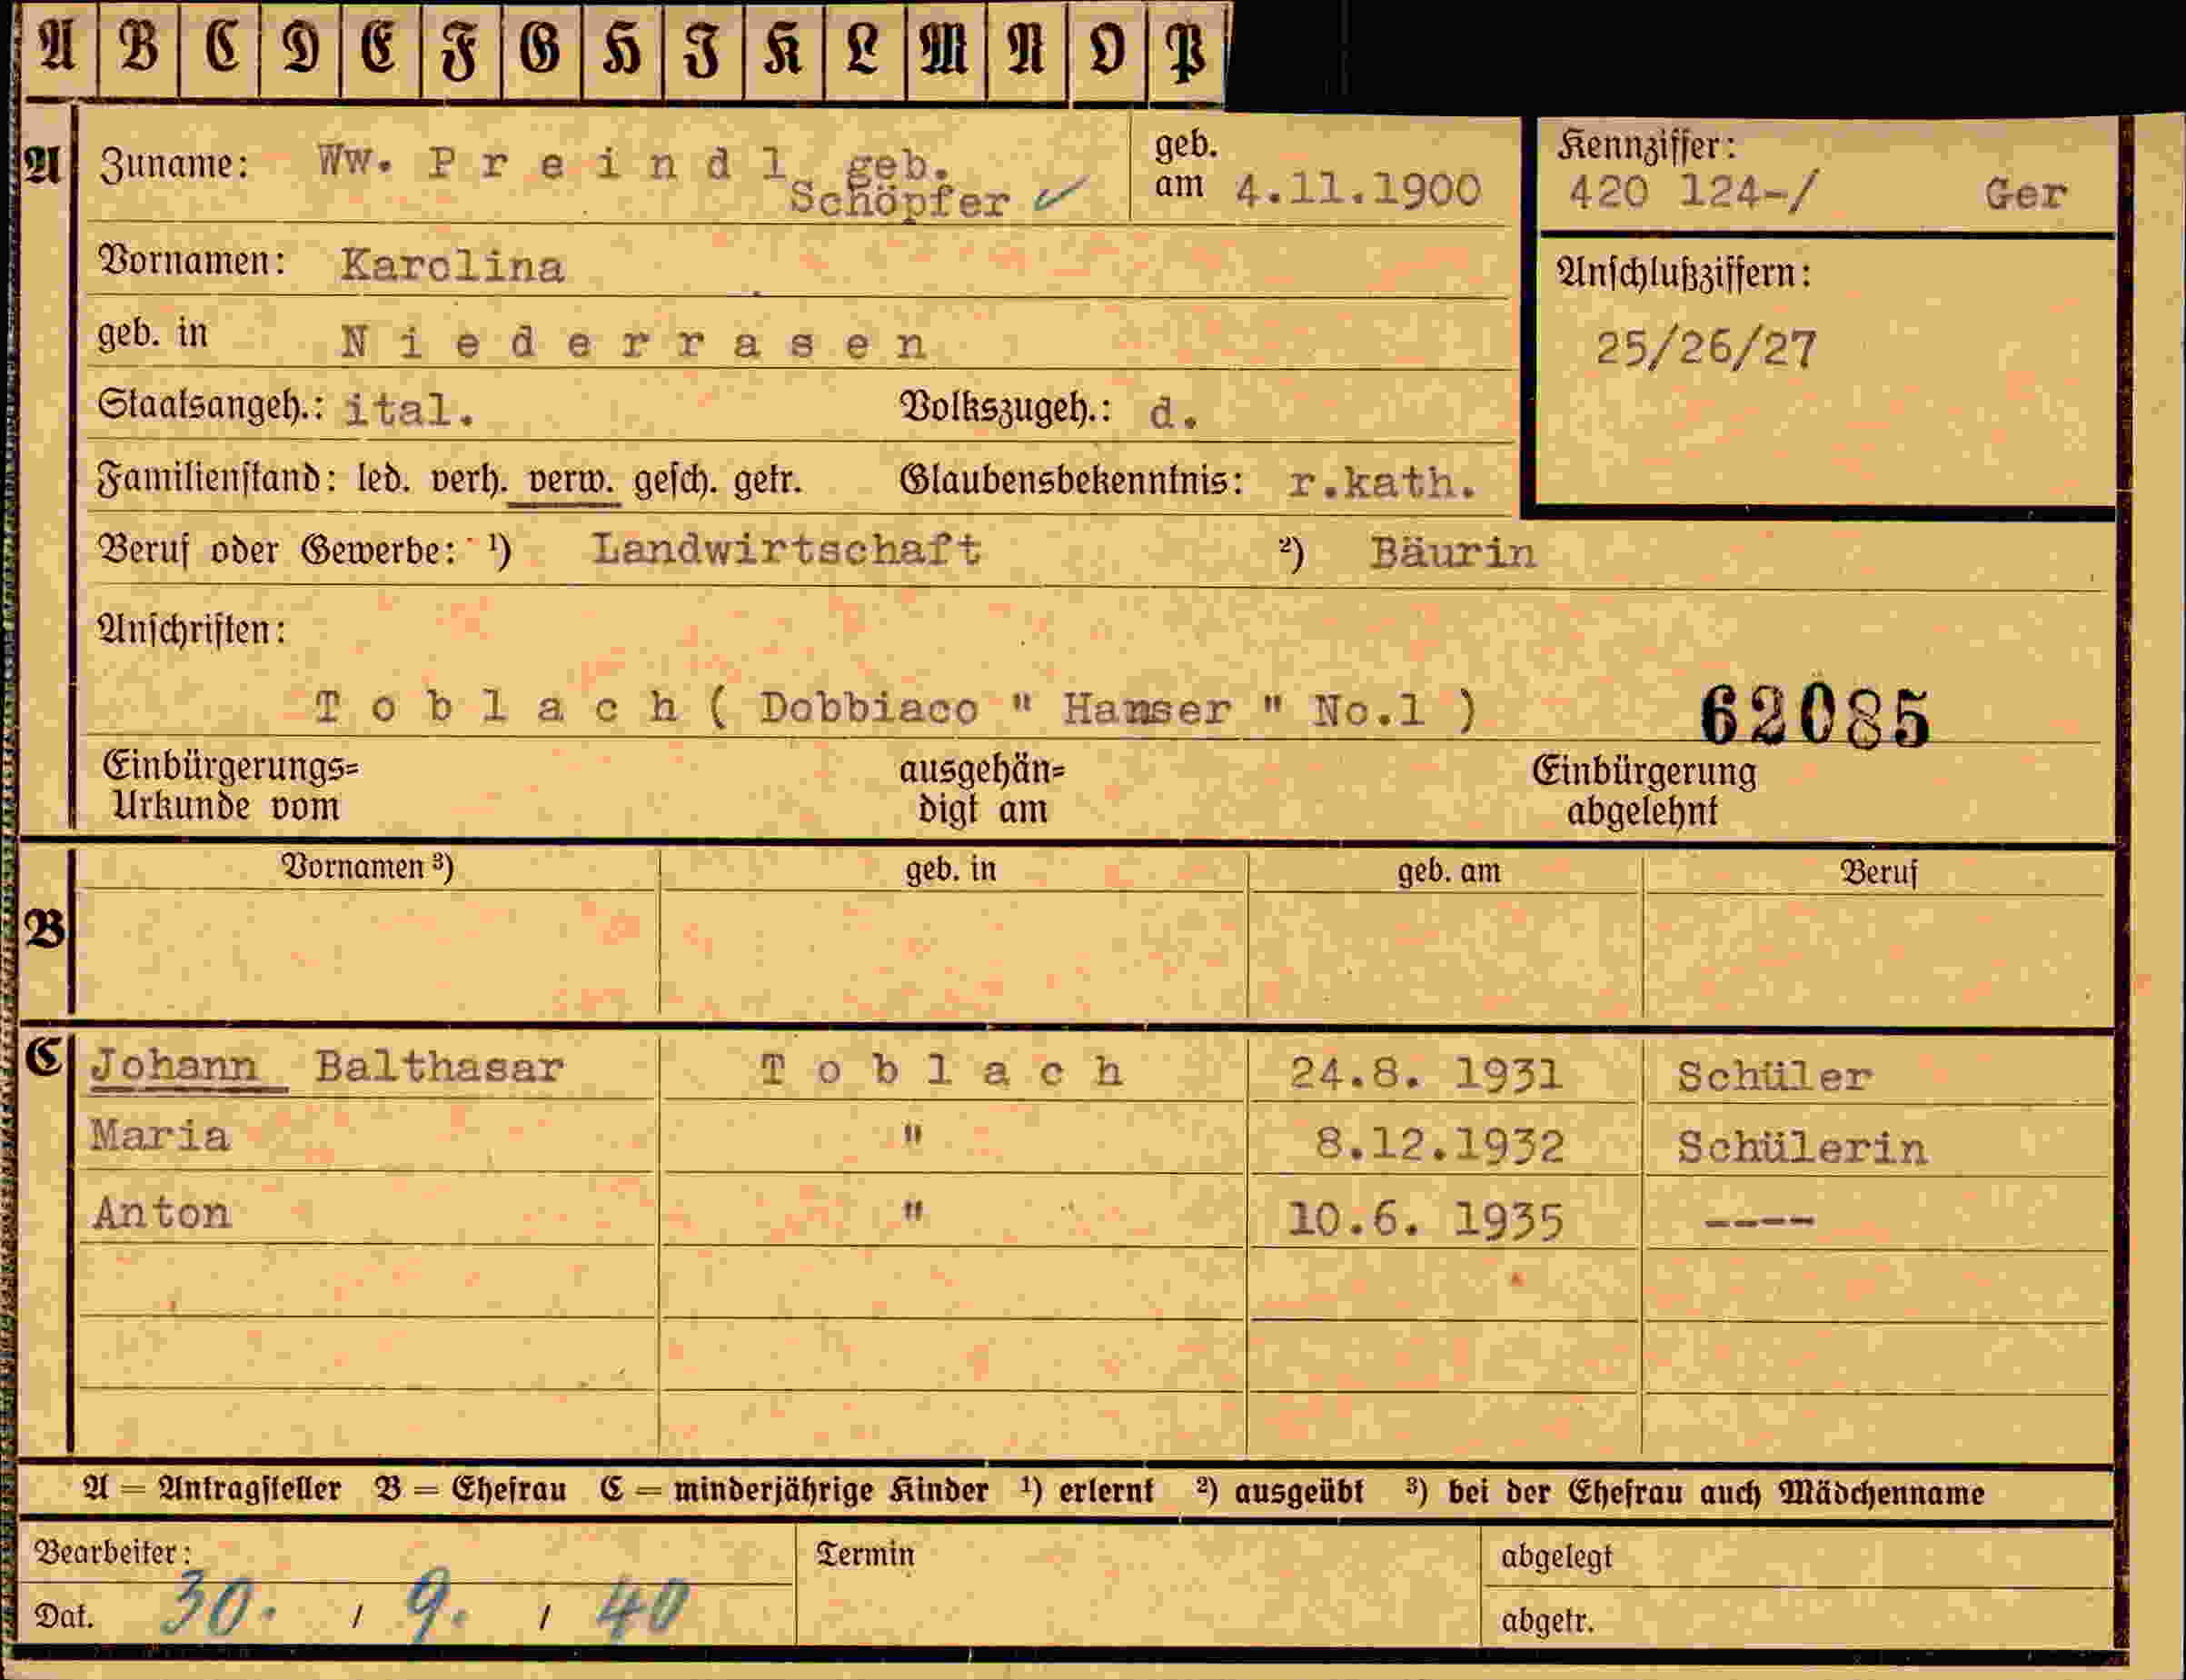 A B C D E F G H I K L M N O P
A Zuname: Ww. P r e i n d l geb. geb. Kennziffer:
Schöpfer am 4.11.1900 420 124-/ Ger
Vornamen: Karolina Anschlußziffern:
geb. in N i e d e r r a s e n 25/26/27
Staatsangeh.: ital. Volkszugeh.: d.
Familienstand: led. verh. verw. gesch. getr. Glaubensbekenntnis: r.kath.
Beruf oder Gewerbe: ¹) Landwirtschaft ²) Bäurin
Anschriften:
T o b l a c h ( Dobbiaco " Hamser " No.1 ) 62085
Einbürgerungs= ausgehän= Einbürgerung
Urkunde vom digt am abgelehnt
Vornamen ³) geb. in geb. am Beruf
B
C Johann Balthasar T o b l a c h 24.8. 1931 Schüler
Maria " 8.12.1932 Schülerin
Anton " 10.6. 1935 ----
A = Antragsteller B = Ehefrau C = minderjährige Kinder ¹) erlernt ²) ausgeübt ³) bei der Ehefrau auch Mädchenname
Bearbeiter: Termin abgelegt
Dat. 30. / 9. / 40 abgetr.